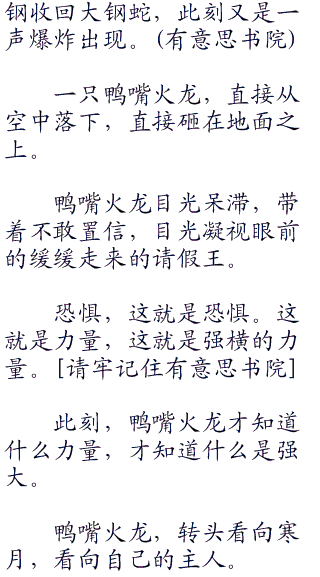 钢收回大钢蛇，此刻又是一
声爆炸出现。(有意思书院)
一只鸭嘴火龙，直接从
空中落下，直接砸在地面之
上。
鸭嘴火龙目光呆滞，带
着不敢置信，目光凝视眼前
的缓缓走来的请假王。
恐惧，这就是恐惧。这
就是力量，这就是强横的力
量。[请牢记住有意思书院]
此刻，鸭嘴火龙才知道
什么力量，才知道什么是强
大。
鸭嘴火龙，转头看向寒
月，看向自己的主人。